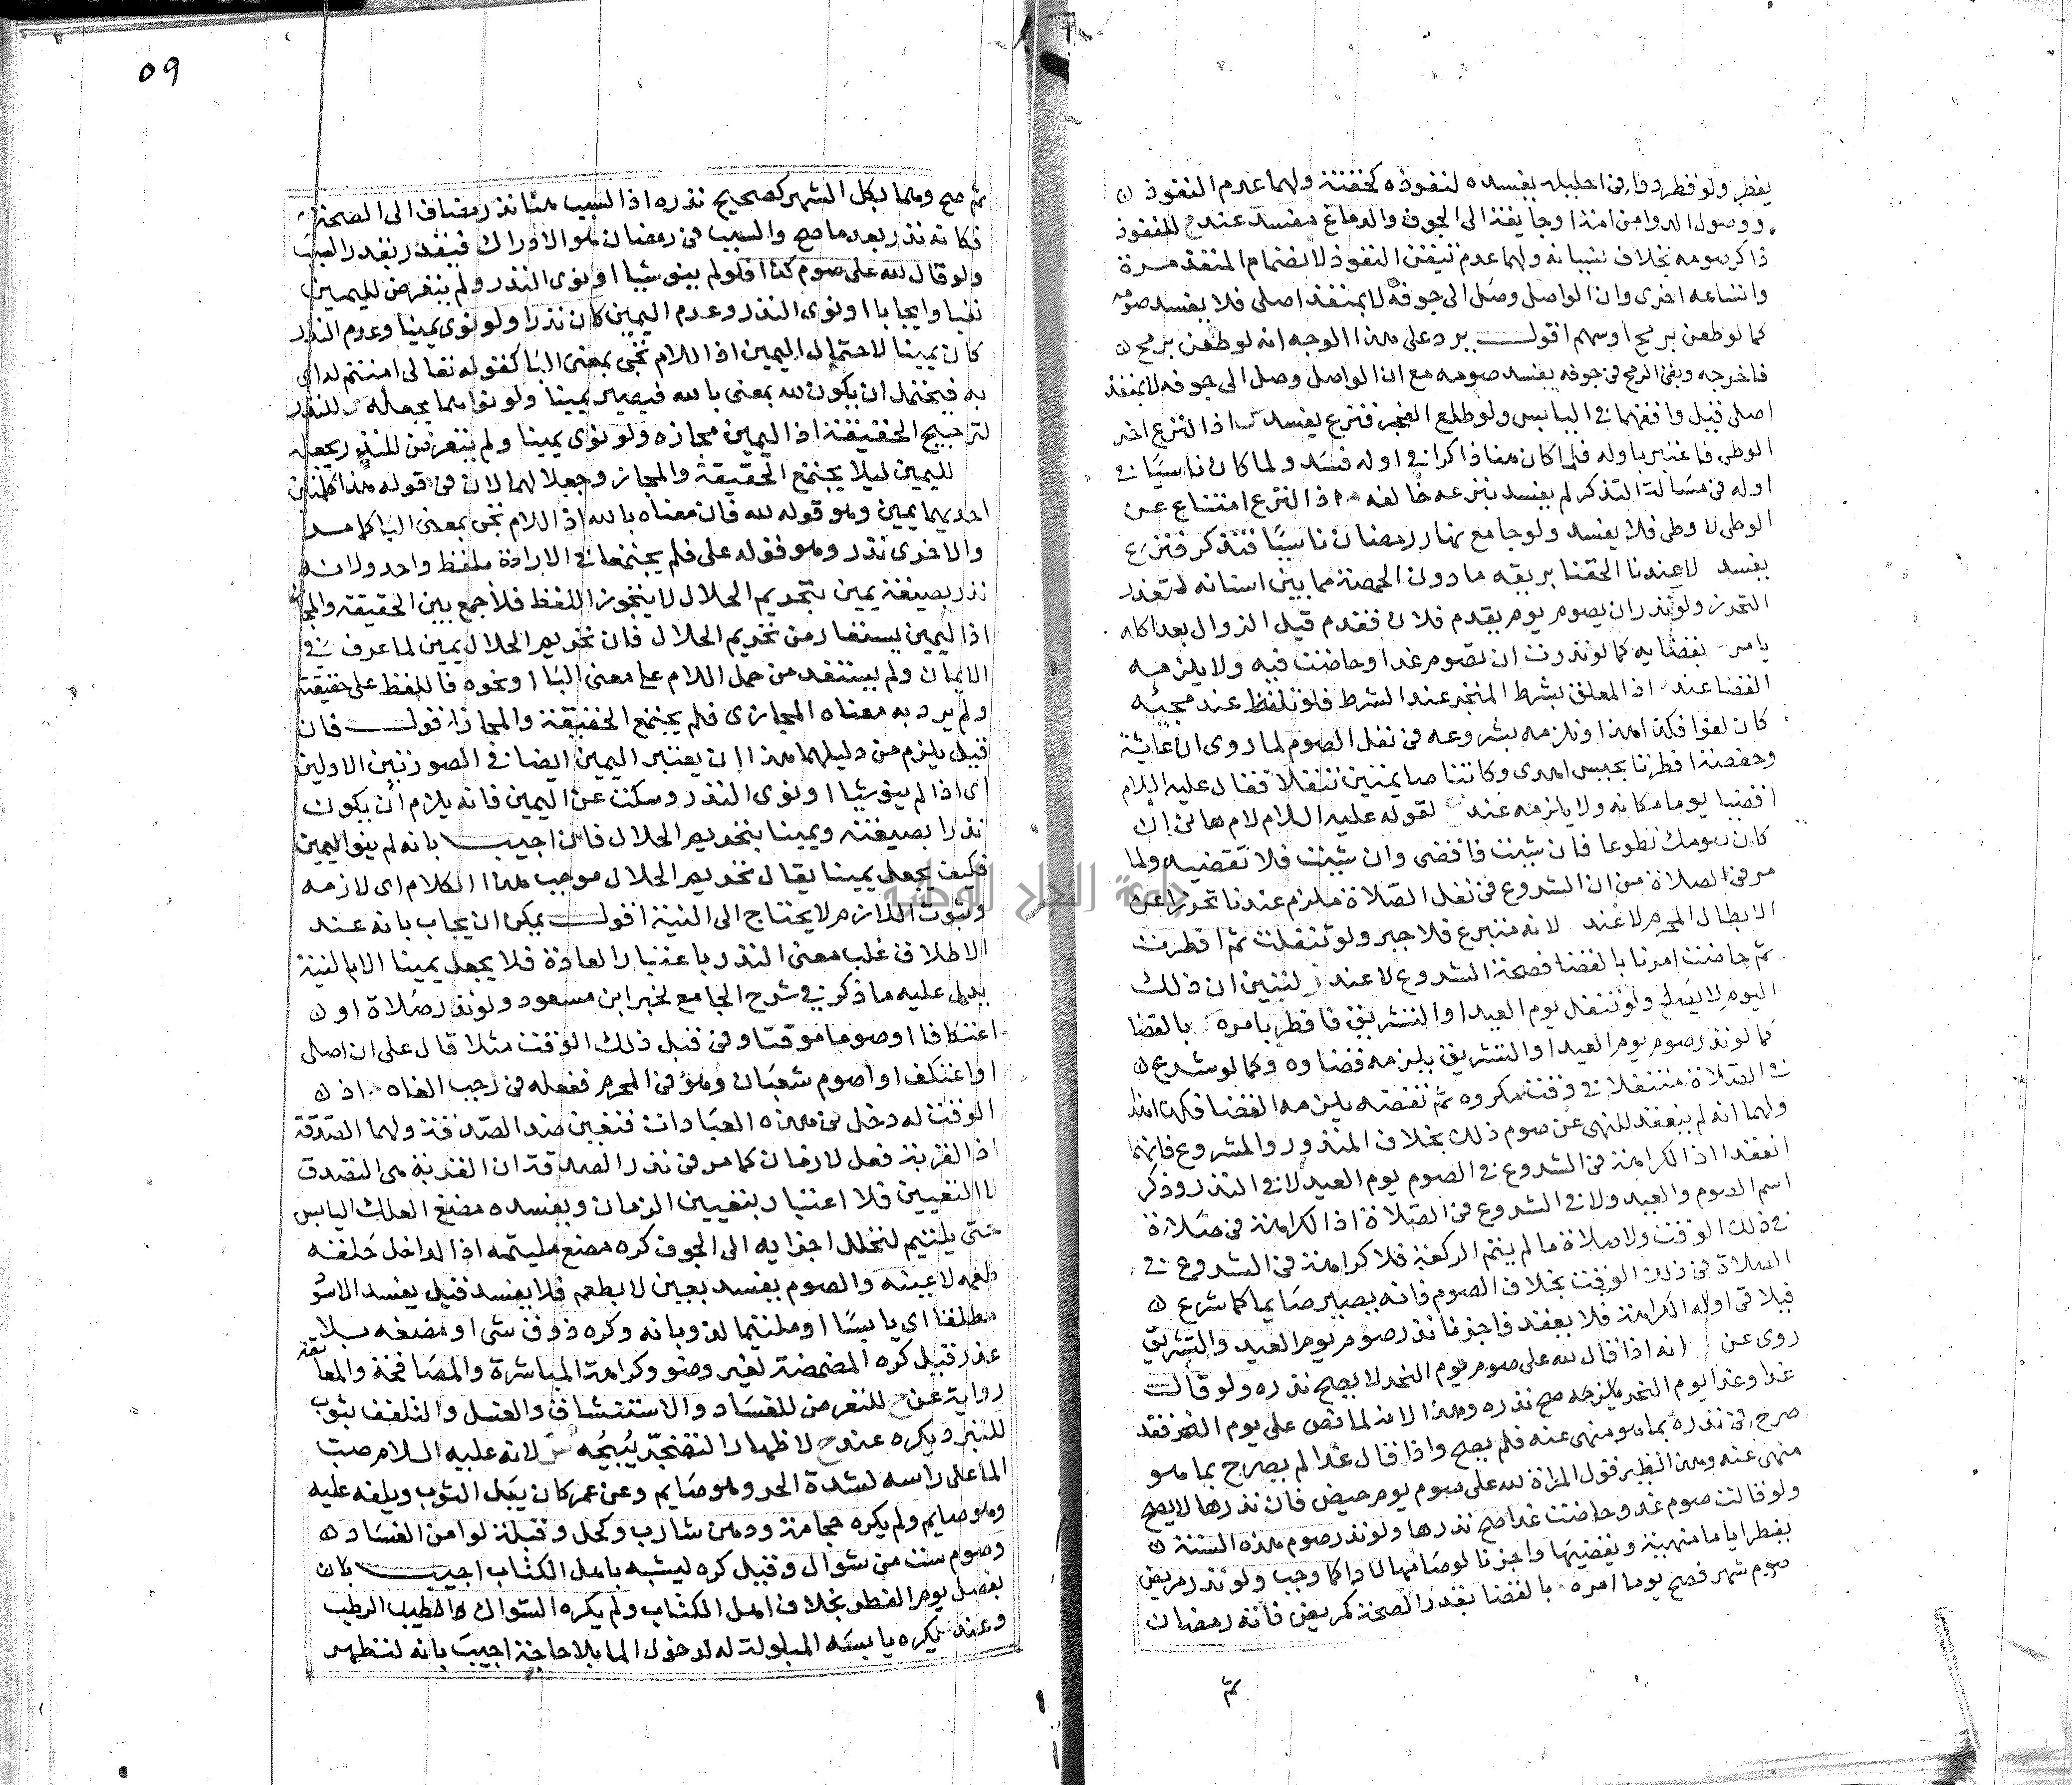 يفطر ولو قطر دواء في احليله يفسده لنفوذه كحقنة ولهما عدم النفوذ
ووصول الدوا من امة او جايفة الى الجوف والدماغ مفسد عند ح للنفوذ
ذاكر صومه بخلاف نسيانه ولهما عدم تيقن النفوذ لانضمام المنفذ مرة
واتساعه اخرى وان الواصل وصل الى جوفه لا بمنفذ اصلي فلا يفسد صومه
كما لو طعن برمح او سهم اقول يرد على هذا الوجه انه لو طعن برمح
فاخرجه وبقي الزج في جوفه يفسد صومه مع ان الواصل وصل الى جوفه لا بمنفذ
اصلي قيل وافقهما في اليابس ولو طلع الفجر فنزع يفسد اذ النزع اخر
الوطي فاعتبر باوله فلما كان هنا ذاكرا في اوله فسد ولما كان ناسيا في
اوله في مسالة التذكر لم يفسد بنزعه خالفه اذ النزع امتناع عن
الوطي لا وطي فلا يفسد ولو جامع نهار رمضان ناسيا فتذكر فنزع
يفسد لا عندنا الحقنا بريقه ما دون الحمصة مما بين اسنانه لتعذر
التحرز ولو نذر ان يصوم يوم يقدم فلان فقدم قبل الزوال بعد اكله
يامر بقضايه كما لو نذرت ان تصوم غدا وحاضت فيه ولا يلزمه
القضا عند اذ المعلق بشرط المنجز عند الشرط فلو تلفظ عند مجيئه
كان لغوا فكذا هذا ونلزمه بشروعه في نفل الصوم لما روى ان عايشة
وحفصة افطرتا بحيس اهدي وكانتا صايمتين تنفلا فقال عليه السلام
اقضيا يوما مكانه ولا يلزمه عند لقوله عليه السلام لام هاني ان
كان صومك تطوعا فان شيت فاقضي وان شيت فلا تقضيه ولما
مر في الصلاة من ان الشروع في نفل الصلاة ملزم عندنا تحرزا عن
الابطال المحرم لا عند لانه متبرع فلا جبر ولو تنفلت ثم افطرت
ثم حاضت امرنا بالقضا فصحة الشروع لا عند ز لتبين ان ذلك
اليوم لا يصلح ولو تنفل يوم العيد او التشريق فافطر يامره بالقضا
كما لو نذر صوم يوم العيد او التشريق يلزمه قضاوه وكما لو شرع
في الصلاة متنفلا في وقت مكروه ثم نقضه يلزمه القضا فكذا هذا
ولهما انه لم ينعقد للنهي عن صوم ذلك بخلاف المنذور والمشروع فانهما
انعقدا اذ الكراهة في الشروع في الصوم يوم العيد لا في النذر وذكر
اسم الصوم والعيد ولا في الشروع في الصلاة اذ الكراهة في صلاة
في ذلك الوقت ولا صلاة ما لم يتم الركعة فلا كراهة في الشروع في
الصلاة في ذلك الوقت بخلاف الصوم فانه يصير صايما كما شرع
فيلاقي اوله الكراهة فلا يعقد واجزنا نذر صوم يوم العيد والتشريق
روى عن انه اذا قال لله على صوم يوم النحر لا يصح نذره ولو قال
غدا وغدا يوم النحر يلزمه صح نذره وهذا لانه لما نص على يوم النحر فقد
صرح في نذره بما هو منهي عنه فلم يصح واذا قال غدا لم يصرح بما هو
منهي عنه وهذا نظير قول المراة لله على صوم يوم حيض فان نذرها لا يصح
ولو قالت صوم غد وحاضت غدا صح نذرها ولو نذر صوم هذه السنة
يفطر اياما منهية ويقضيها واجزنا لو صامها لاداكما وجب ولو نذر مريض
صوم شهر فصح يوما امره بالقضا بقدر الصحة كمريض فاته رمضان
ثم
٥٩
ثم صح وهما بكل الشهر كصحيح نذره اذ السبب هنا نذر مضاف الى الصحة
فكانه نذر بعد ما صح والسبب في رمضان هو الادراك فيقدر بقدر السبب
ولو قال لله على صوم كذا فلو لم ينو شيا او نوى النذر ولم يتعرض لليمين
نفيا وايجابا او نوى النذر وعدم اليمين كان نذرا ولو نوى يمينا وعدم النذر
كان يمينا لاحتمال اليمين اذ اللام تجي بمعنى البا كقوله تعالى امنتم له اي
به فيحتمل ان يكون لله بمعنى بالله فيصير يمينا ولو نواهما يجعله للنذر
لترجيح الحقيقة اذ اليمين مجازه ولو نوى يمينا ولم يتعرض للنذر يجعله
لليمين ليلا يجتمع الحقيقة والمجاز وجعلا لهما لان في قوله هذا كلمتين
احديهما يمين وهو قوله لله فان معناه بالله اذ اللام تجي بمعنى البا كما مر
والاخرى نذر وهو قوله على فلم يجتمعا في الارادة ملفظ واحد ولانه
نذر بصيغة يمين بتحريم الحلال لا بتجوز اللفظ فلا جمع بين الحقيقة والمجاز
اذ اليمين يستفاد من تحريم الحلال فان تحريم الحلال يمين لما عرف في
الايمان ولم يستفد من حمل اللام على معنى البا او نحوه فاللفظ على حقيقته
ولم يرد به معناه المجازي فلم يجتمع الحقيقة والمجاز اقول فان
قيل يلزم من دليلهما هذا ان يعتبر اليمين ايضا في الصورتين الاولين
اي اذا لم ينو شيا او نوى النذر وسكت عن اليمين فانه يلزم ان يكون
نذرا بصيغته ويمينا بتحريم الحلال فان اجيب بانه لم ينو اليمين
فكيف يجعل يمينا يقال تحريم الحلال موجب هذا الكلام اي لازمه
وثبوت اللازم لا يحتاج الى النية اقول يمكن ان يجاب بانه عند
الاطلاق غلب معنى النذر باعتبار العادة فلا يجعل يمينا الا بالنية
يدل عليه ما ذكر في شرح الجامع لخبر ابن مسعود ولو نذر صلاة او
اعتكافا او صوما موقتا وفي قبل ذلك الوقت مثلا قال على ان اصلي
او اعتكف او اصوم شعبان وهو في المحرم ففعله في رجب الغاه اذ
الوقت له دخل في هذه العبادات فتغين ضد الصدقة ولهما الصدقة
اذ القربة فعل لا زمان كما مر في نذر الصدقة ان القربة هي التصدق
لا التعيين فلا اعتبار بتعيين الزمان ويفسده مضغ العلك اليابس
حتى يلتيم لتخلل اجزايه الى الجوف كره مضغ ملتيمه اذ الداخل حلقه
طعمه لا عينه والصوم يفسد بعين لا بطعم فلا يفسد قيل يفسد الاسود
مطلقا اي يابسا او ملتيما لذوبانه وكره ذوق شي او مضغه بلا
عذر قيل كره المضمضة لغير وضو وكراهة المباشرة والمصافحة والمعانقة
رواية عن ح للتعرض للفساد والاستنشاق والغسل والتلفف بثوب
للتبرد يكره عند ح لاظهار التضجر يبيحه س لانه عليه السلام صب
الما على راسه لشدة الحر وهو صايم وعن عمر كان يبل الثوب ويلفه عليه
وهو صايم ولم يكره حجامة ودهن شارب وكحل وقبلة لو امن الفساد
وصوم ست من شوال وقيل كره ليشبه باهل الكتاب اجيب بان
يفصل يوم الفطر بخلاف اهل الكتاب ولم يكره السواك والطيب الرطب
وعند يكره يابسه المبلولة له لدخول الما بلا حاجة اجيب بانه لتطهر